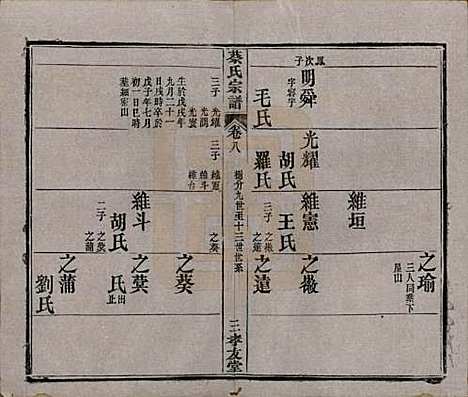 鳳次子
明舜
字容宇
毛氏
光耀
胡氏
羅氏
維垣
維憲
王氏
三子
之徽
之遠
之瑜
三人同葬下
屋山
之徽
之遠
蔡氏宗譜
卷八
楊分九世至十三世世系
三
孝友堂
三子
光耀
光潤
光寰
生於戊戌年
九月二十一
日戌時卒於
戊子年七月
初一日巳時
三子
維憲
維斗
維台
維斗
胡氏
二子
之葵
之蒲
之葵
之葵
之蒖
氏出
止
之蒲
劉氏